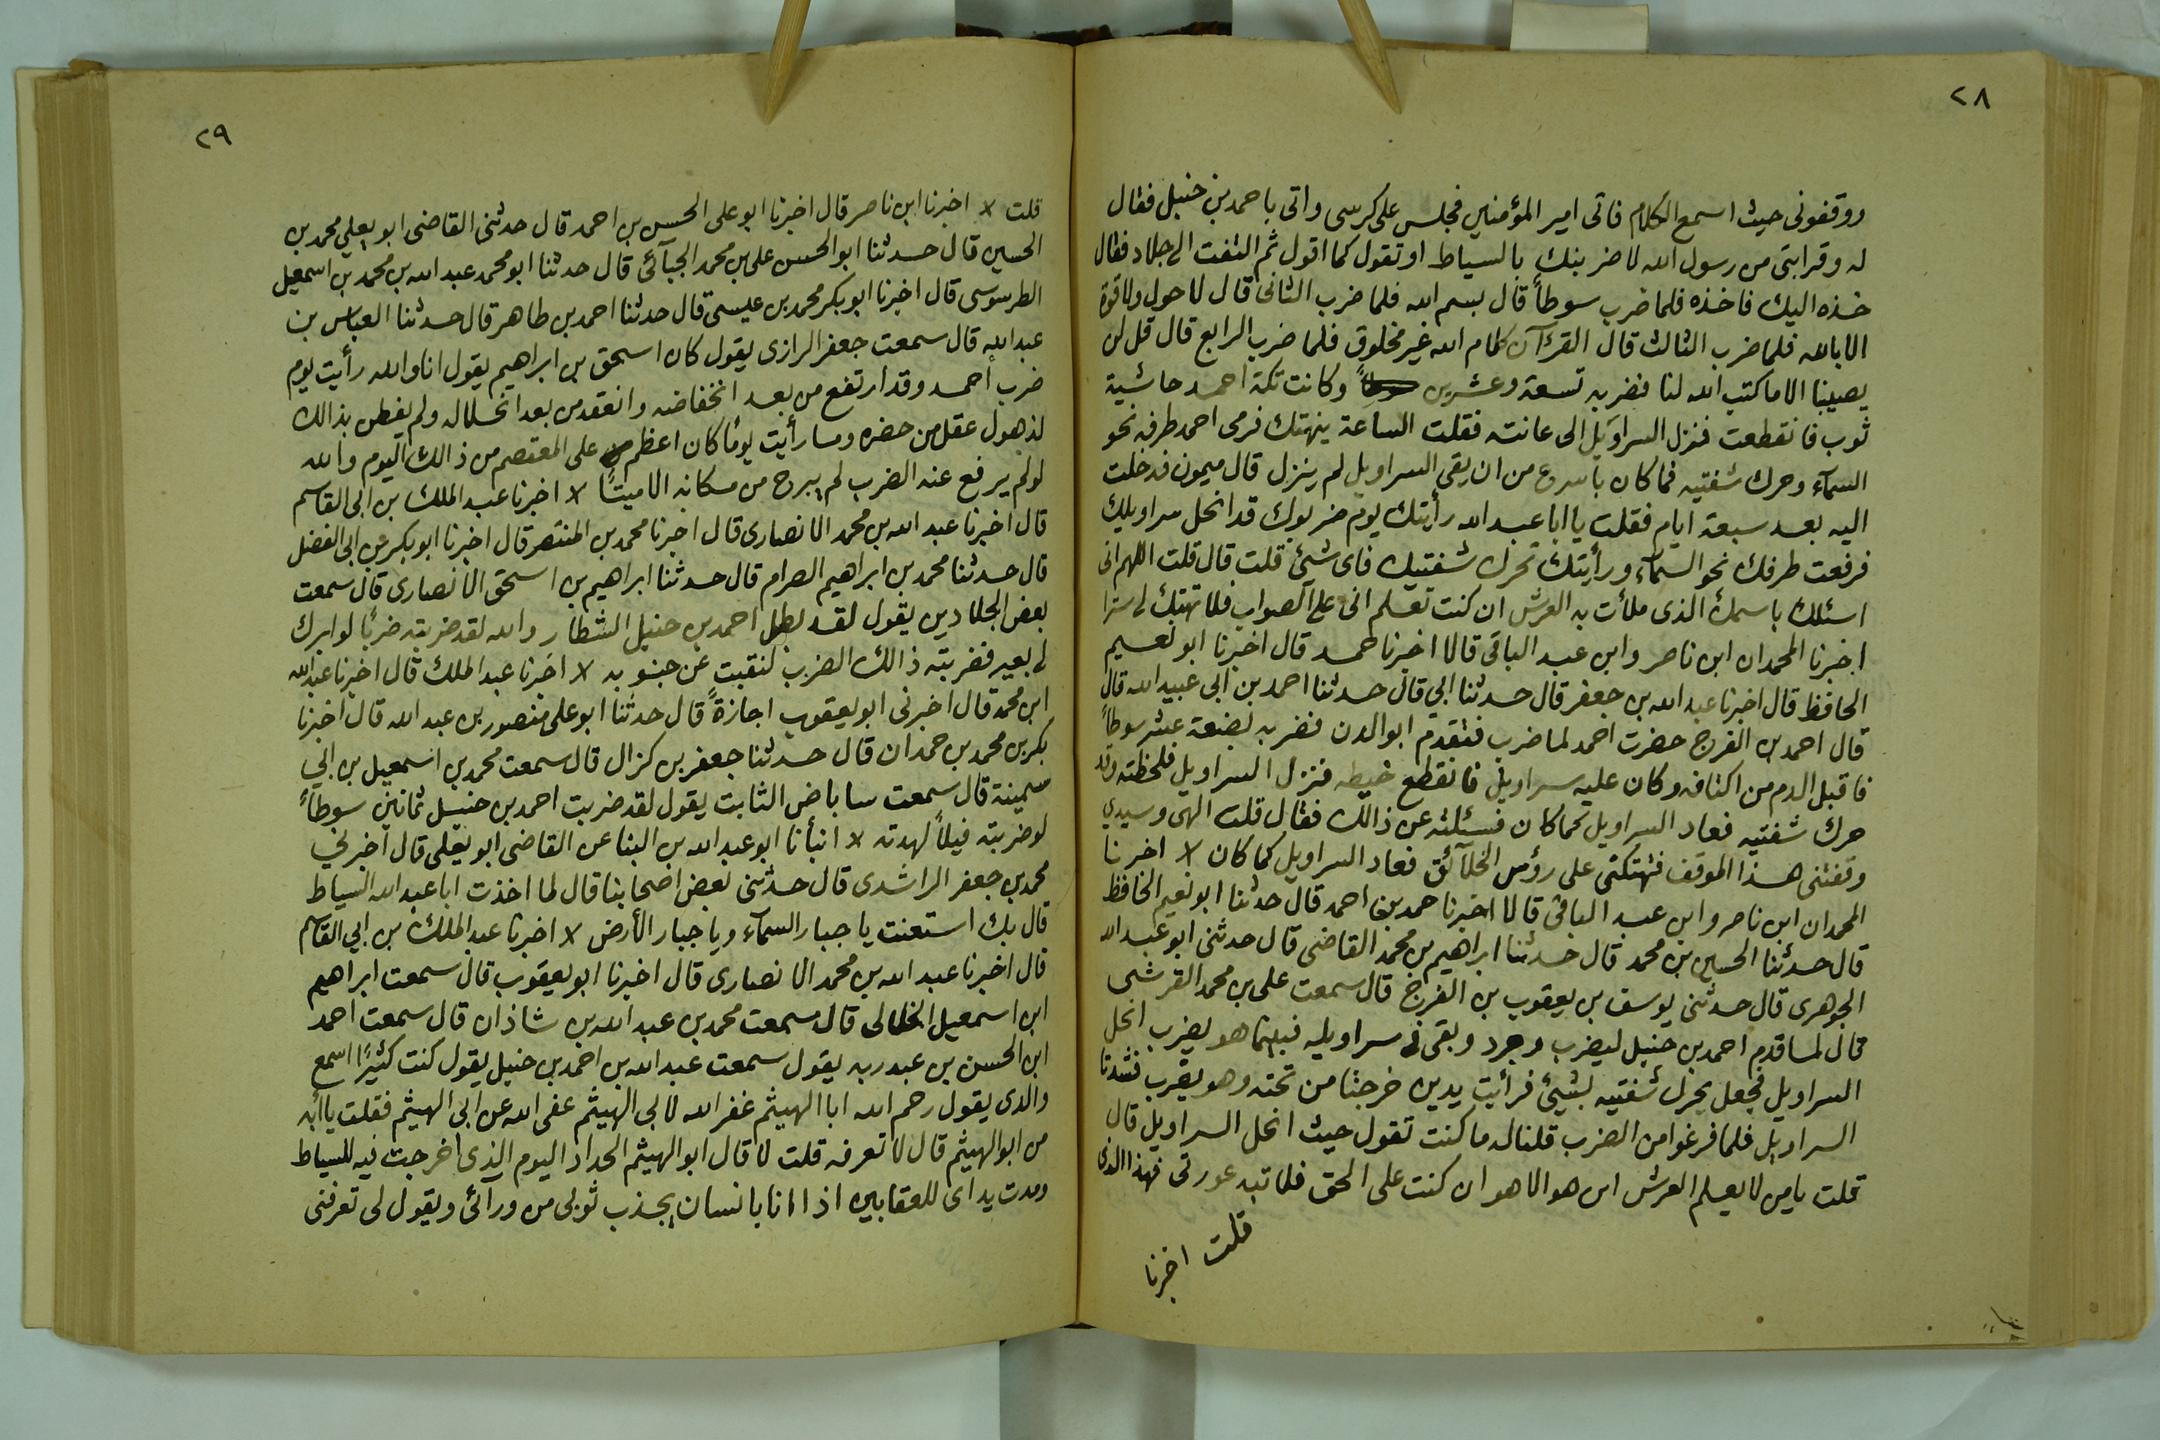 ٢٨
ووقفونى حيث اسمع الكلام فاتى امير المؤمنين فجلس على كرسى واتى باحمد بن حنبل فقال
له وقرابتى من رسول الله لاضربنك بالسياط او تقول كما اقول ثم التفت الى جلاد فقال
خذه اليك فاخذه فلما ضرب سوطاً قال بسم الله فلما ضرب الثانى قال لا حول ولا قوة
الا بالله فلما ضرب الثالث قال القرآن كلام الله غير مخلوق فلما ضرب الرابع قال قل لن
يصيبنا الا ما كتب الله لنا فضربه تسعة وعشرين سوطاً وكانت تكة احمد حاشية
ثوب فانقطعت فنزل السراويل الى عانته فقلت الساعة ينهتك فرمى احمد طرفه نحو
السمآء وحرك شفتيه فما كان باسرع من ان بقى السراويل لم ينزل قال ميمون فدخلت
اليه بعد سبعة ايام فقلت يا ابا عبد الله رأيتك يوم ضربوك قد انحل سراويلك
فرفعت طرفك نحو السمآء ورأيتك تحرك شفتيك فاى شئ قلت قال قلت اللهم انى
اسئلك باسمك الذى ملأت به العرش ان كنت تعلم انى على الصواب فلا تهتك لى سترا
اخبرنا المحمدان ابن ناصر وابن عبد الباقى قالا اخبرنا حمد قال اخبرنا ابو نعيم
الحافظ قال اخبرنا عبد الله بن جعفر قال حدثنا ابي قال حدثنا احمد بن ابى عبيد الله قال
قال احمد بن الفرج حضرت احمد لما ضرب فتقدم ابو الدن فضربه بضعة عشر سوطاً
فاقبل الدم من اكتافه وكان عليه سراويل فانقطع خيطه فنزل السراويل فلحظته وقد
حرك شفتيه فعاد السراويل كما كان فسئلته عن ذالك فقال قلت الهى وسيدي
وقفتنى هذا الموقف فتهتكنى على رؤس الخلآئق فعاد السراويل كما كان x اخبرنا
المحمدان ابن ناصر وابن عبد الباقى قالا اخبرنا حمد بن احمد قال حدثنا ابو نعيم الحافظ
قال حدثنا الحسين بن محمد قال حدثنا ابراهيم بن محمد القاضى قال حدثنى ابو عبد الله
الجوهرى قال حدثنى يوسف بن يعقوب بن الفرج قال سمعت على بن محمد القرشى
قال لما قدم احمد بن حنبل ليضرب وجرد وبقى فى سراويله فبينما هو يضرب انحل
السراويل فجعل يحرك شفتيه بشيئ فرأيت يدين خرجتا من تحته وهو يضرب فشدتا
السراويل فلما فرغوا من الضرب قلنا له ما كنت تقول حيث انحل السراويل قال
قلت يا من لا يعلم العرش اين هو الا هو ان كنت على الحق فلا تبد عورتى فهذا الذى
قلت اخبرنا
٢٩
قلت x اخبرنا ابن ناصر قال اخبرنا ابو على الحسن بن احمد قال حدثنى القاضى ابو يعلي محمد بن
الحسين قال حدثنا ابو الحسن على بن محمد الجبآئى قال حدثنا ابو محمد عبد الله بن محمد بن اسمعيل
الطرسوسى قال اخبرنا ابو بكر محمد بن عيسى قال حدثنا احمد بن طاهر قال حدثنا العباس بن
عبد الله قال سمعت جعفر الرازى يقول كان اسحق بن ابراهيم يقول انا والله رأيت يوم
ضرب احمد وقد ارتفع من بعد انخفاضه وانعقد من بعد انحلاله ولم يفطن بذالك
لذهول عقل من حضره وما رأيت يومًا كان اعظم على المعتصم من ذالك اليوم والله
لو لم يرفع عنه الضرب لم يبرح من مكانه الا ميتًا x اخبرنا عبد الملك بن ابى القاسم
قال اخبرنا عبد الله بن محمد الانصارى قال اخبرنا محمد بن المنتصر قال اخبرنا ابو بكر بن ابى الفضل
قال حدثنا محمد بن ابراهيم الصرام قال حدثنا ابراهيم بن اسحق الانصارى قال سمعت
بعض الجلادين يقول لقد بطل احمد بن حنبل الشطار والله لقد ضربته ضربًا لو ابرك
لى بعير فضربته ذالك الضرب لنقبت عن جنوبه x اخبرنا عبد الملك قال اخبرنا عبد الله
ابن محمد قال اخبرنى ابو يعقوب اجازةً قال حدثنا ابو على منصور بن عبد الله قال اخبرنا
بكر بن محمد بن حمدان قال حدثنا جعفر بن كزال قال سمعت محمد بن اسمعيل بن ابي
سمينة قال سمعت ساباض الثابت يقول لقد ضربت احمد بن حنبل ثمانين سوطاً
لو ضربته فيلاً لهدته x انبأنا ابو عبد الله بن البنا عن القاضى ابو يعلى قال اخبرني
محمد بن جعفر الراشدى قال حدثنى بعض اصحابنا قال لما اخذت ابا عبد الله السياط
قال بك استعنت يا جبار السمآء ويا جبار الأرض x اخبرنا عبد الملك بن ابي القاسم
قال اخبرنا عبد الله بن محمد الانصارى قال اخبرنا ابو يعقوب قال سمعت ابراهيم
ابن اسمعيل الخلالى قال سمعت محمد بن عبد الله بن شاذان قال سمعت احمد
ابن الحسن بن عبد ربه يقول سمعت عبد الله بن احمد بن حنبل يقول كنت كثيرًا اسمع
والدى يقول رحم الله ابا الهيثم غفر الله لابى الهيثم عفى الله عن ابى الهيثم فقلت يا أبه
من ابو الهيثم قال لا تعرفه قلت لا قال ابو الهيثم الحداد اليوم الذى اخرجت فيه للسياط
ومدت يداى للعقابين اذا انا بانسان يجذب ثوبى من ورائى ويقول لى تعرفنى